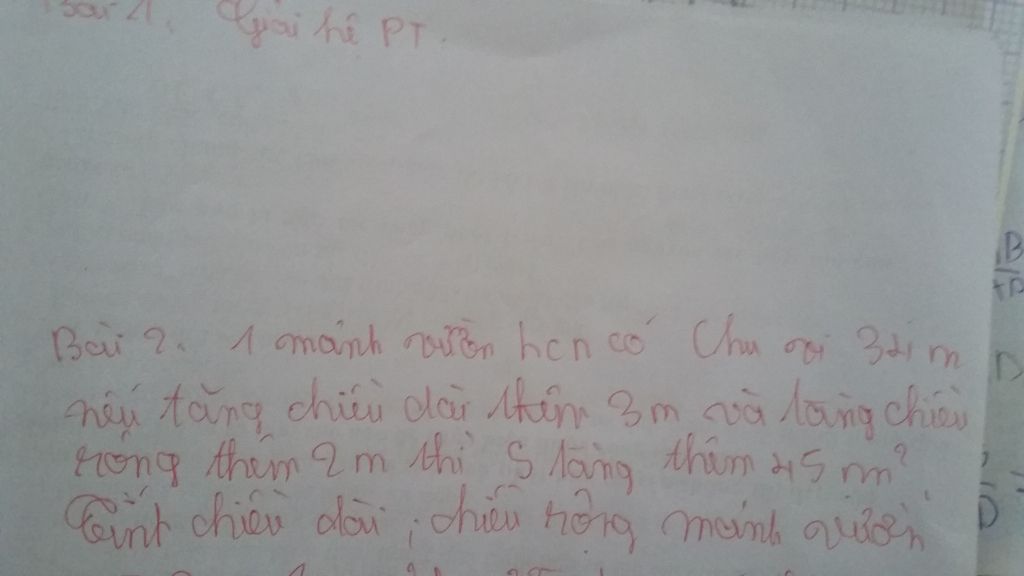 Bài 1. Giải hệ PT.
Bài 2. 1 mảnh vườn hcn có Chu vi 34 m
nếu tăng chiều dài thêm 3m và tăng chiều
rộng thêm 2m thì S tăng thêm 45 m²
Tính chiều dài, chiều rộng mảnh vườn